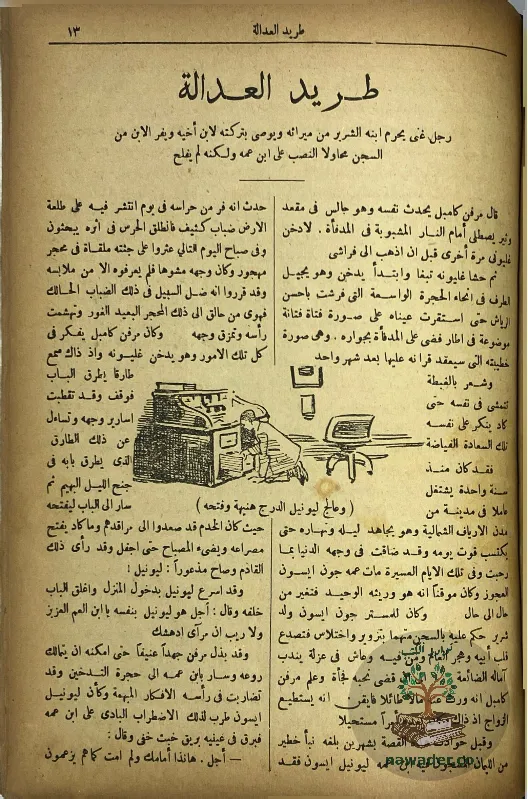 طريد العدالة
١٣
طريد العدالة
رجل غنى يحرم ابنه الشرير من ميراثه ويوصى بتركته لابن أخيه ويفر الابن من
السجن محاولا النصب على ابن عمه ولكنه لم يفلح
قال مرفن كامبل يحدث نفسه وهو جالس فى مقعد
وثير يصطلى أمام النار المشبوبة فى المدفأة. لادخن
غليونى مرة أخرى قبل ان اذهب الى فراشى
ثم حشا غليونه تبغا وابتدأ يدخن وهو يجيل
الطرف فى انحاء الحجرة الواسعة التى فرشت باحسن
الرياش حتى استقرت عيناه على صورة فتاة فتانة
موضوعة فى اطار فضى على المدفأة بجواره. وهى صورة
خطيبته التى سيعقد قرانه عليها بعد شهر واحد
وشعر بالغبطة
تتمشى فى نفسه حتى
كاد ينكر على نفسه
تلك السعادة الفياضة
فقد كان منذ
سنة واحدة يشتغل
عاملا فى مدينة من
مدن الارياف الشمالية وهو يجاهد ليله ونهاره حتى
يكتسب قوت يومه وقد ضاقت فى وجهه الدنيا بما
رحبت وفى تلك الايام العسيرة مات عمه جون ايسون
العجوز وكان موقنا انه هو وريثه الوحيد فتغير من
حال الى حال وكان للمستر جون ايسون ولد
شرير حكم عليه بالسجن متهما بتزوير واختلاس فتصدع
قلب أبيه وهجر العالم ومن فيه وعاش فى عزلة يندب
آماله الضائعة قضى نحبه فجأة وعلم مرفن
كامبل انه ورث طائلا فأيقن انه يستطيع
الزواج اذ ذاك أمرا مستحيلا
وقبل حوادث القصة بشهرين بلغه نبأ خطير
من الليمان عمه ليونيل ايسون فقد
حدث انه فر من حراسه فى يوم انتشر فيه على طلعة
الارض ضباب كثيف فانطلق الحرس فى أثره يبحثون
وفى صباح اليوم التالي عثروا على جثته ملقاة فى محجر
مهجور وكان وجهه مشوها فلم يعرفوه الا من ملابسه
وقد قرروا انه ضل السبيل فى ذلك الضباب الحالك
فهوى من حالق الى ذلك المحجر البعيد الغور وتهشمت
رأسه وتمزق وجهه وكان مرفن كامبل يفكر فى
كل تلك الامور وهو يدخن غليونه واذ ذاك سمع
طارقا يطرق الباب
فوقف وقد تقطبت
اسارير وجهه وتساءل
عن ذلك الطارق
الذى يطرق بابه فى
جنح الليل البهيم ثم
سار الى الباب ليفتحه
( وعالج ليونيل الدرج هنيهة وفتحه )
حيث كان الخدم قد صعدوا الى مراقدهم وما كاد يفتح
مصراعه ويضىء المصباح حتى اجفل وقد رأى ذلك
القادم وصاح مذعوراً : ليونيل !
وقد اسرع ليونيل بدخول المنزل واغلق الباب
خلفه وقال : أجل هو ليونيل بنفسه يا ابن العم العزيز
ولا ريب ان مرآى ادهشك
وقد بذل مرفن جهداً عنيفا حتى امكنه ان يتمالك
روعه وسار بابن عمه الى حجرة التدخين وقد
تضاربت فى رأسه الافكار المبهمة وكأن ليونيل
ايسون طرب لذلك الاضطراب البادى على ابن عمه
فبرق فى عينيه بريق خبث خفى وقال :
— أجل . هانذا أمامك ولم امت كما هم يزعمون
نوادر الكتب
nawader.co